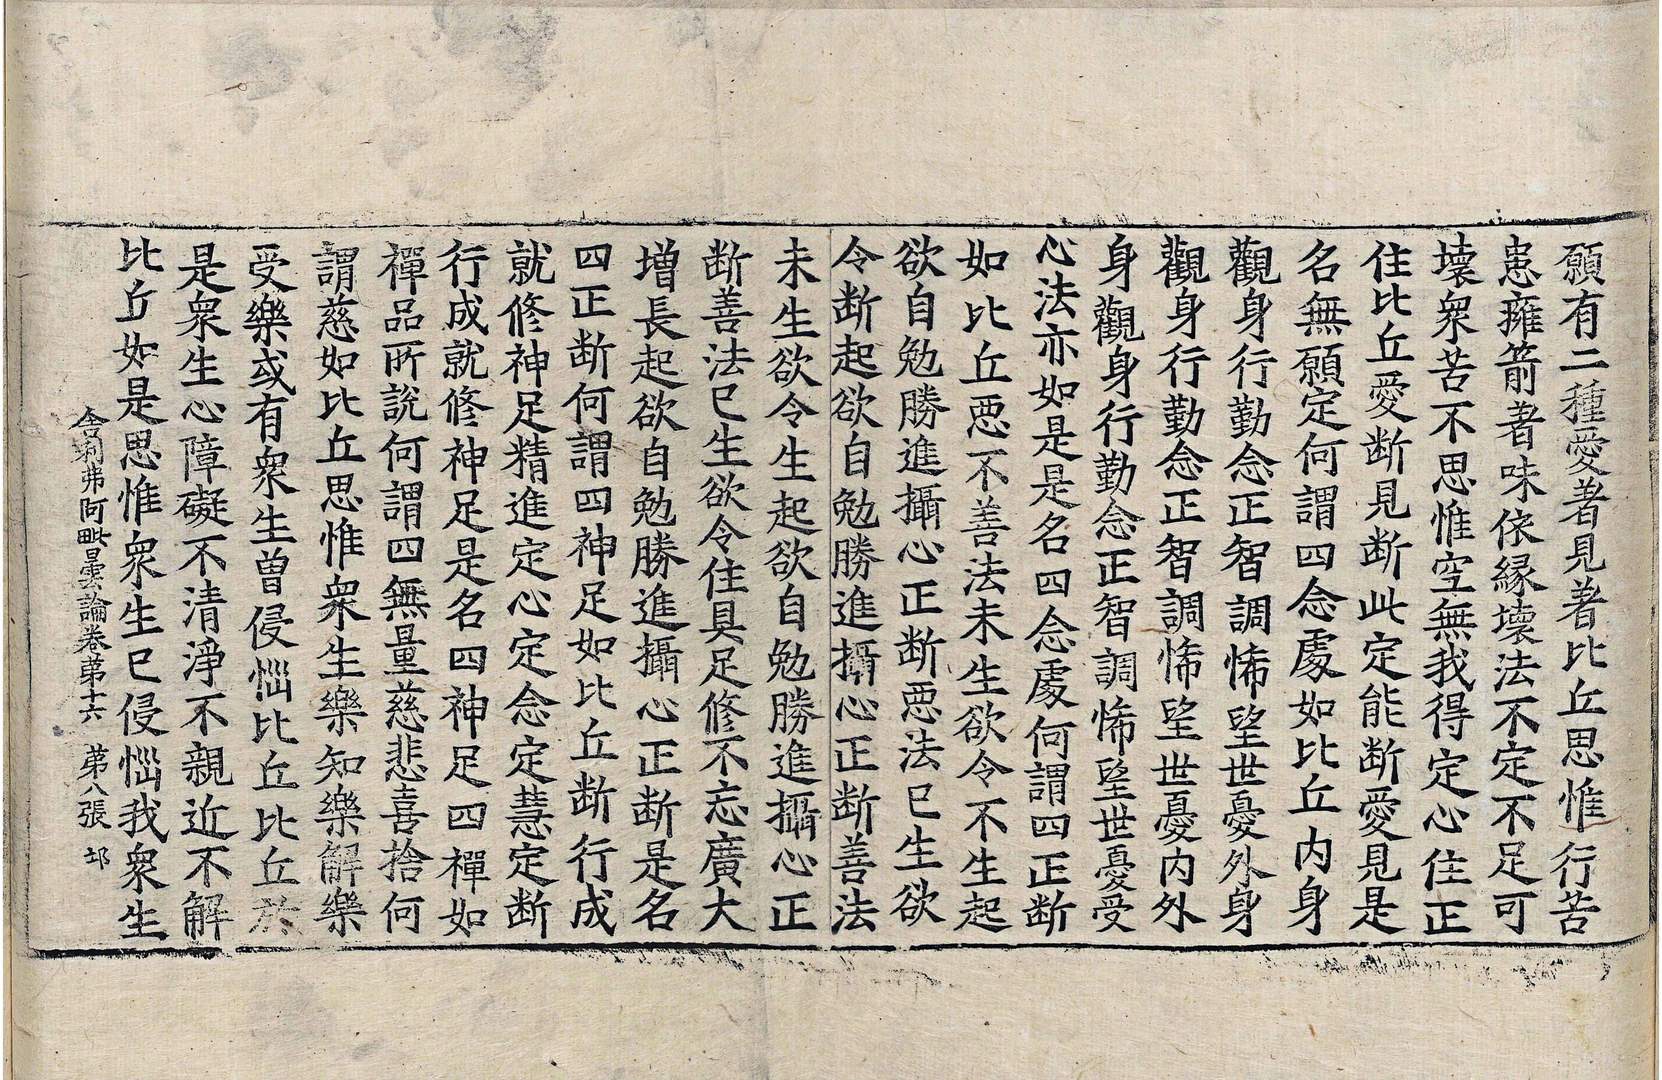 願有二種愛著見著比丘思惟行苦
患癰箭著味依緣壞法不定不足可
壞衆苦不思惟空無我得定心住正
住比丘愛断見断此定能断愛見是
名無願定何謂四念處如比丘内身
觀身行勤念正智調悕望世憂外身
觀身行勤念正智調悕望世憂内外
身觀身行勤念正智調悕望世憂受
心法亦如是是名四念處何謂四正断
如比丘惡不善法未生欲令不生起
欲自勉勝進攝心正断惡法已生欲
令断起欲自勉勝進攝心正断善法
未生欲令生起欲自勉勝進攝心正
断善法已生欲令住具足修不忘廣大
増長起欲自勉勝進攝心正断是名
四正断何謂四神足如比丘断行成
就修神足精進定心定念定慧定断
行成就修神足是名四神足四禪如
禪品所說何謂四無量慈悲喜捨何
謂慈如比丘思惟衆生樂知樂解樂
受樂或有衆生曽侵惱比丘比丘於
是衆生心障礙不清淨不親近不解
比丘如是思惟衆生已侵惱我衆生
舍利弗阿毗曇論卷苐十六 苐八張 邙